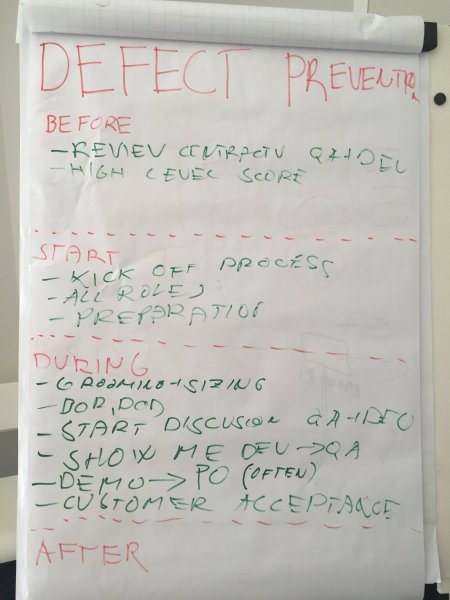 DEFECT PREVENTION
BEFORE
- REVIEV CONTRACTU QA+DEV
- HIGH LEVEL SCORE
START
- KICK OFF PROCESS
- ALL ROLES
- PREPARATION
DURING
- GROOMING+SIZING
- DOR, DOD
- START DISCUSION QA+DEV
- SHOW ME DEV→QA
- DEMO → PO (OFTEN)
- CUSTOMER ACCEPTANCE
AFTER